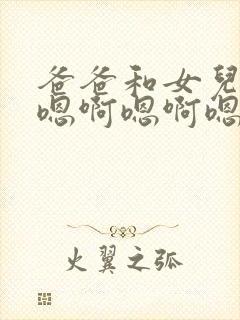 爸爸和女兒
嗯啊嗯啊嗯
火翼之弧